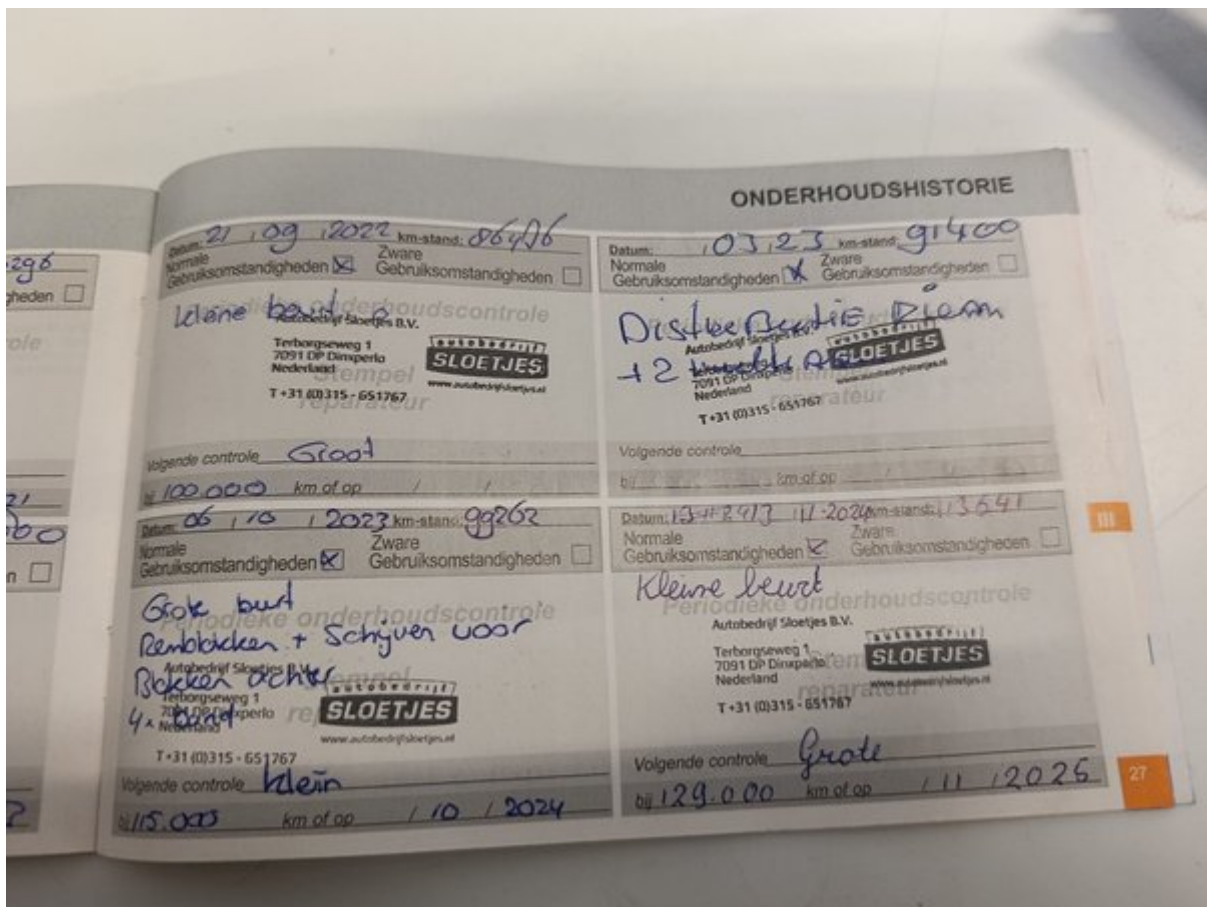 ONDERHOUDSHISTORIE
296
gheden
ole
21
00
n
Datum: 21 / 09 / 2022 km-stand:
Normale Zware
Gebruiksomstandigheden Gebruiksomstandigheden
kleine beurt
Periodieke onderhoudscontrole
Autobedrijf Sloetjes B.V.
Terborgseweg 1
7091 DP Dinxperlo
Nederland
Stempel
reparateur
T +31 (0)315 - 651767
autobedrijf
SLOETJES
www.autobedrijfsloetjes.nl
Volgende controle Groot
bij 100.000 km of op / /
Datum: / 03 / 23 km-stand: 91400
Normale Zware
Gebruiksomstandigheden Gebruiksomstandigheden
DistrieButie Riem
+ 2
Autobedrijf Sloetjes B.V.
7091 DP Dinxperlo
Nederland
T +31 (0)315 - 651767
SLOETJES
www.autobedrijfsloetjes.nl
Volgende controle
bij km of op / /
Datum: 06 / 10 / 2023 km-stand: 99262
Normale Zware
Gebruiksomstandigheden Gebruiksomstandigheden
Grote
Periodieke onderhoudscontrole
Remblokken + Schijven voor
Blokken achter
4x Band
Autobedrijf Sloetjes B.V.
Terborgseweg 1
7091 DP Dinxperlo
Nederland
T +31 (0)315 - 651767
autobedrijf
SLOETJES
www.autobedrijfsloetjes.nl
Volgende controle klein
bij 115.000 km of op / 10 / 2024
Datum: 11-2024 km-stand:
Normale Zware
Gebruiksomstandigheden Gebruiksomstandigheden
Kleine beurt
Periodieke onderhoudscontrole
Autobedrijf Sloetjes B.V.
Terborgseweg 1
7091 DP Dinxperlo
Nederland
reparateur
T +31 (0)315 - 651767
autobedrijf
SLOETJES
www.autobedrijfsloetjes.nl
Volgende controle Grote
bij 129.000 km of op / 11 / 2025
III
27